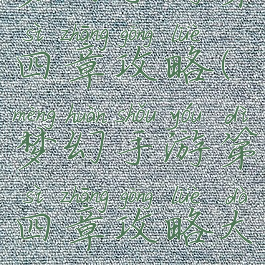 sì zhāng gōng lüè
四章攻略(
mèng huàn shǒu yóu dì
梦幻手游第
sì zhāng gōng lüè dà
四章攻略大